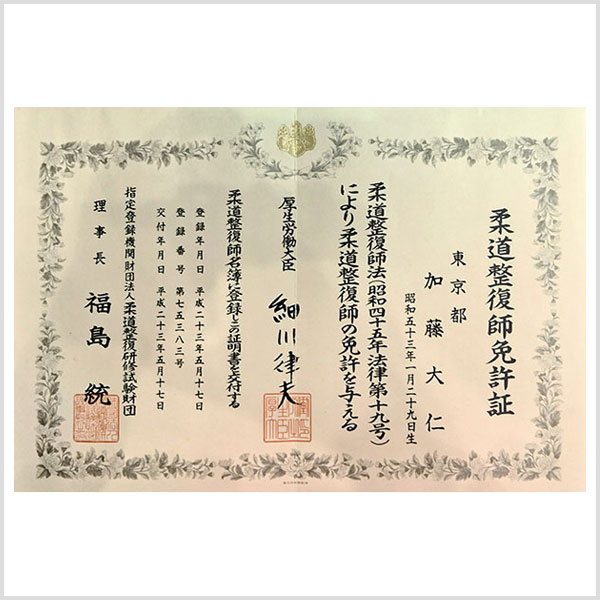 柔道整復師免許証
東京都
加藤大仁
昭和五十三年一月二十九日生
柔道整復師法(昭和四十五年法律第十九号)
により柔道整復師の免許を与える
厚生労働大臣 細川律夫
柔道整復師名簿に登録しこの証明書を交付する
登録年月日 平成二十三年五月十七日
登録番号 第七五三八三号
交付年月日 平成二十三年五月十七日
指定登録機関財団法人柔道整復研修試験財団
理事長 福島統